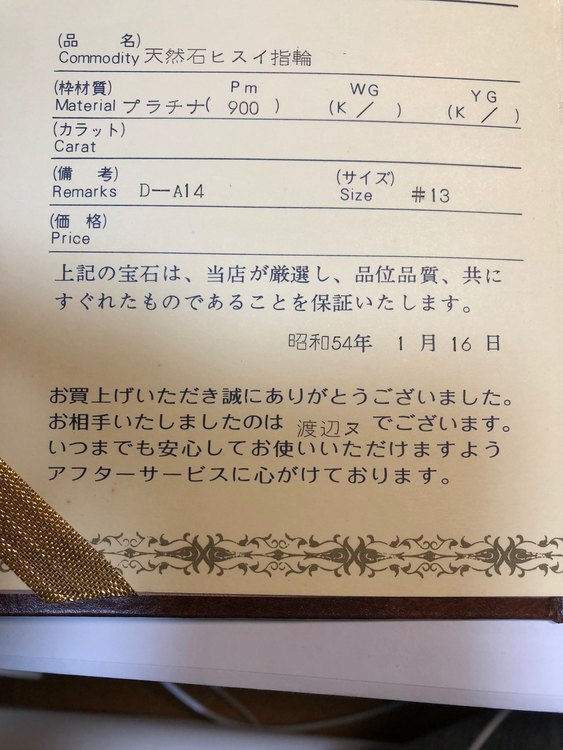 (品 名)
Commodity 天然石ヒスイ指輪
(枠材質) Pm WG YG
Material プラチナ( 900 ) (K / ) (K / )
(カラット)
Carat
(備 考) (サイズ)
Remarks D—A14 Size #13
(価 格)
Price
上記の宝石は、当店が厳選し、品位品質、共に
すぐれたものであることを保証いたします。
昭和54年 1 月 16 日
お買上げいただき誠にありがとうございました。
お相手いたしましたのは 渡辺ヌ でございます。
いつまでも安心してお使いいただけますよう
アフターサービスに心がけております。